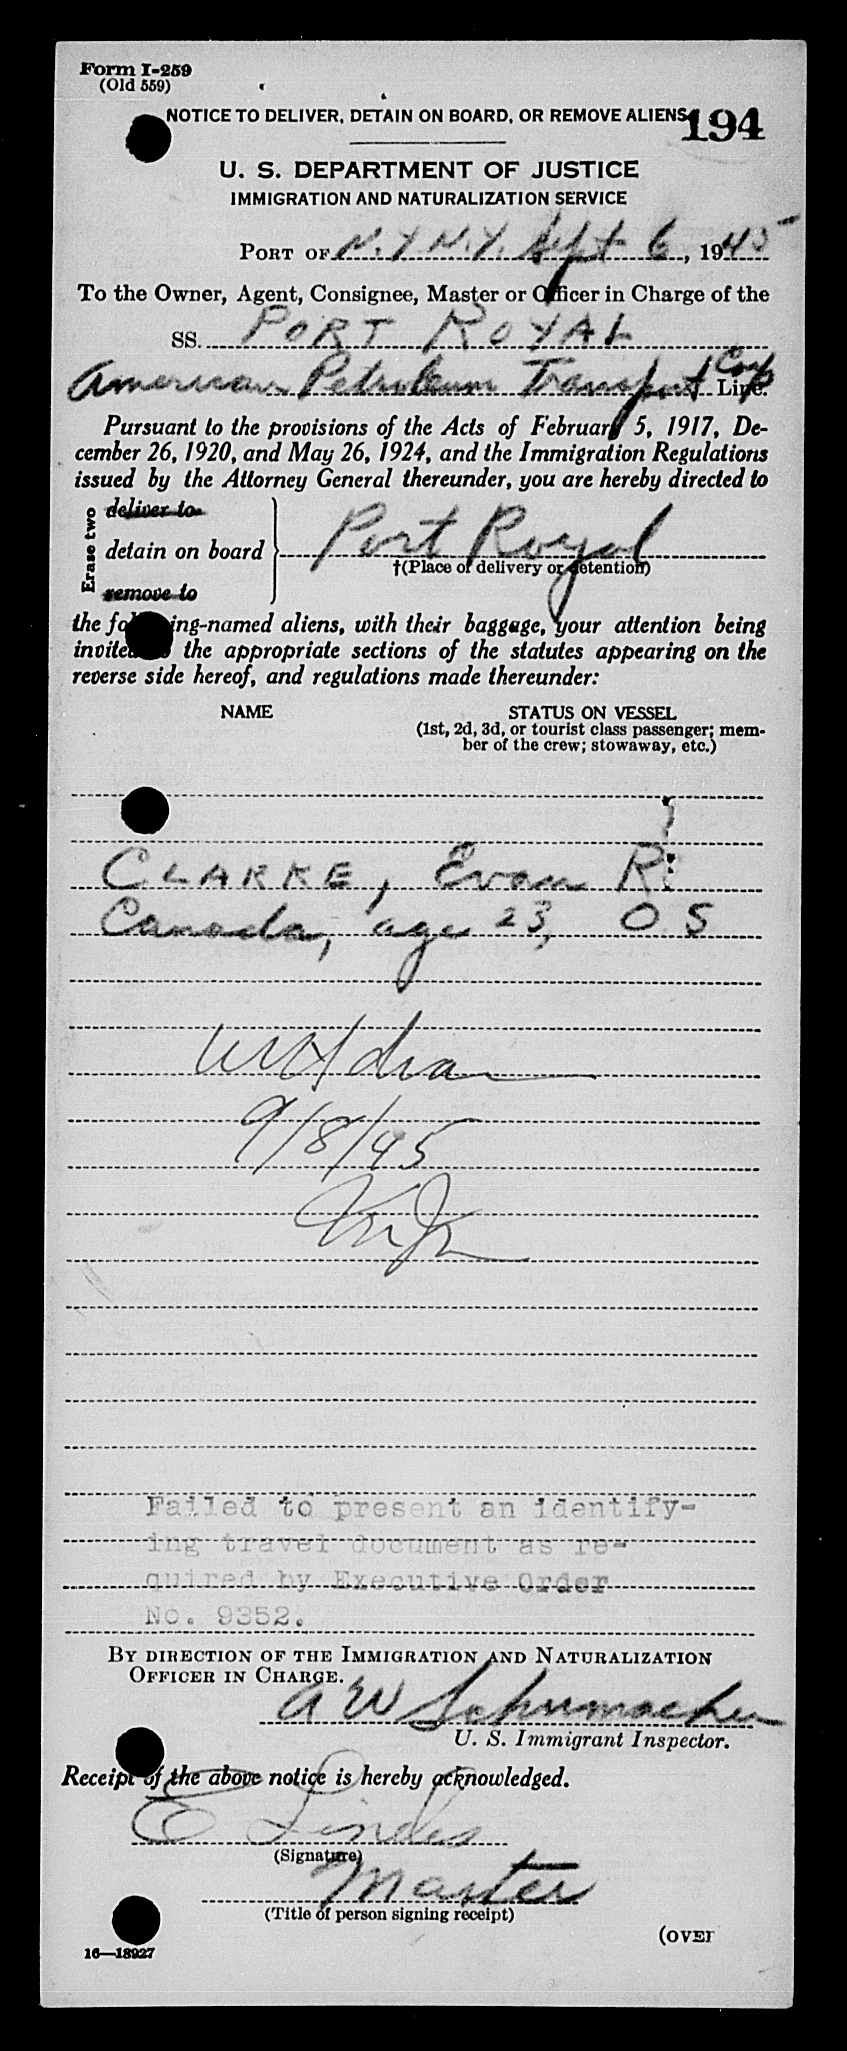 Form I-259
(Old 559)
NOTICE TO DELIVER, DETAIN ON BOARD, OR REMOVE ALIENS
194
U. S. DEPARTMENT OF JUSTICE
IMMIGRATION AND NATURALIZATION SERVICE
PORT OF N.Y. N.Y. Sept 6, 1945
To the Owner, Agent, Consignee, Master or Officer in Charge of the
SS. PORT ROYAL
American Petroleum Transport Corp Line.
Pursuant to the provisions of the Acts of February 5, 1917, De-
cember 26, 1920, and May 26, 1924, and the Immigration Regulations
issued by the Attorney General thereunder, you are hereby directed to
Erase two
deliver to
detain on board
remove to
Port Royal
†(Place of delivery or detention)
the following-named aliens, with their baggage, your attention being
invited the appropriate sections of the statutes appearing on the
reverse side hereof, and regulations made thereunder:
NAME STATUS ON VESSEL
(1st, 2d, 3d, or tourist class passenger; mem-
ber of the crew; stowaway, etc.)
CLARKE, Evan R.
Canada, age 23, O S
9/8/45
Failed to present an identify-
ing travel document as re-
quired by Executive Order
No. 9352.
BY DIRECTION OF THE IMMIGRATION AND NATURALIZATION
OFFICER IN CHARGE.
A W Schumacher
U. S. Immigrant Inspector.
Receipt of the above notice is hereby acknowledged.
E Lindes
(Signature)
Master
(Title of person signing receipt)
(OVER
16—18927